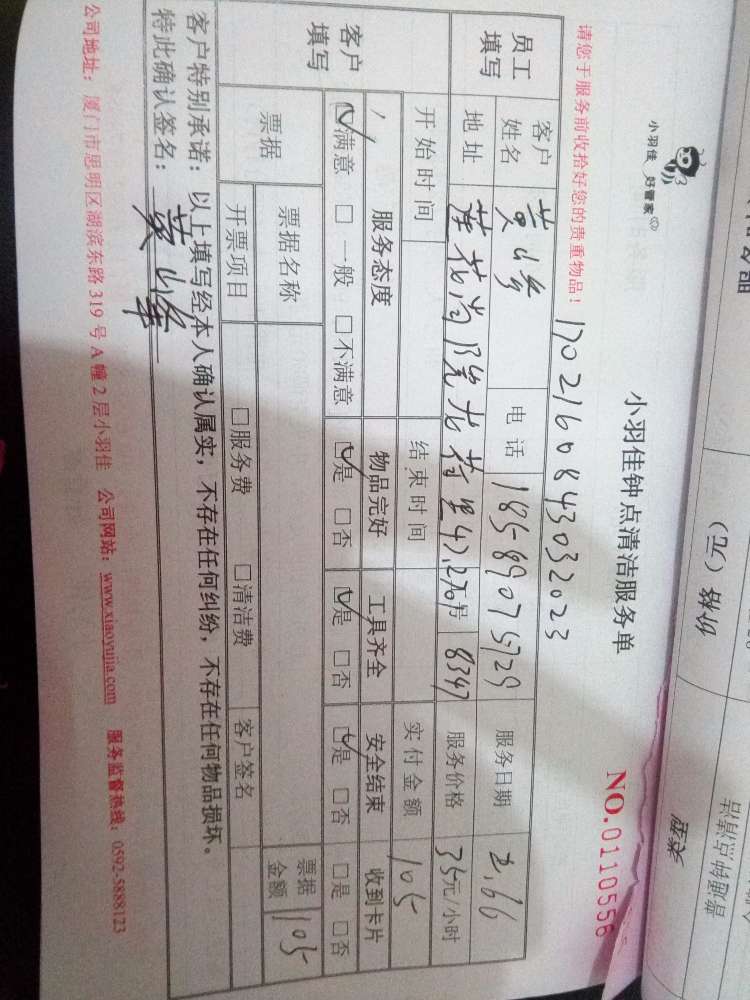 小羽佳 好管家
小羽佳钟点清洁服务单
NO.0110556
请您于服务前收拾好您的贵重物品!
1702160843032023
员工填写
客户姓名 黄山峰 电话 18589075729 服务日期
地址 莲花尚院龙荷里47,2701号 8347 服务价格 35元/小时
开始时间 结束时间 实付金额 105
客户填写
服务态度 物品完好 工具齐全 安全结束 收到卡片
☑满意 □一般 □不满意 ☑是 □否 ☑是 □否 ☑是 □否 □是 □否
票据 票据名称 票据金额 105
开票项目 □服务费 □清洁费 客户签名
客户特别承诺:以上填写经本人确认属实,不存在任何纠纷,不存在任何物品损坏。
特此确认签名:黄山峰
公司地址:厦门市思明区湖滨东路319号A幢2层小羽佳 公司网站:www.xiaoyujia.com 服务监督热线:0592-5888123